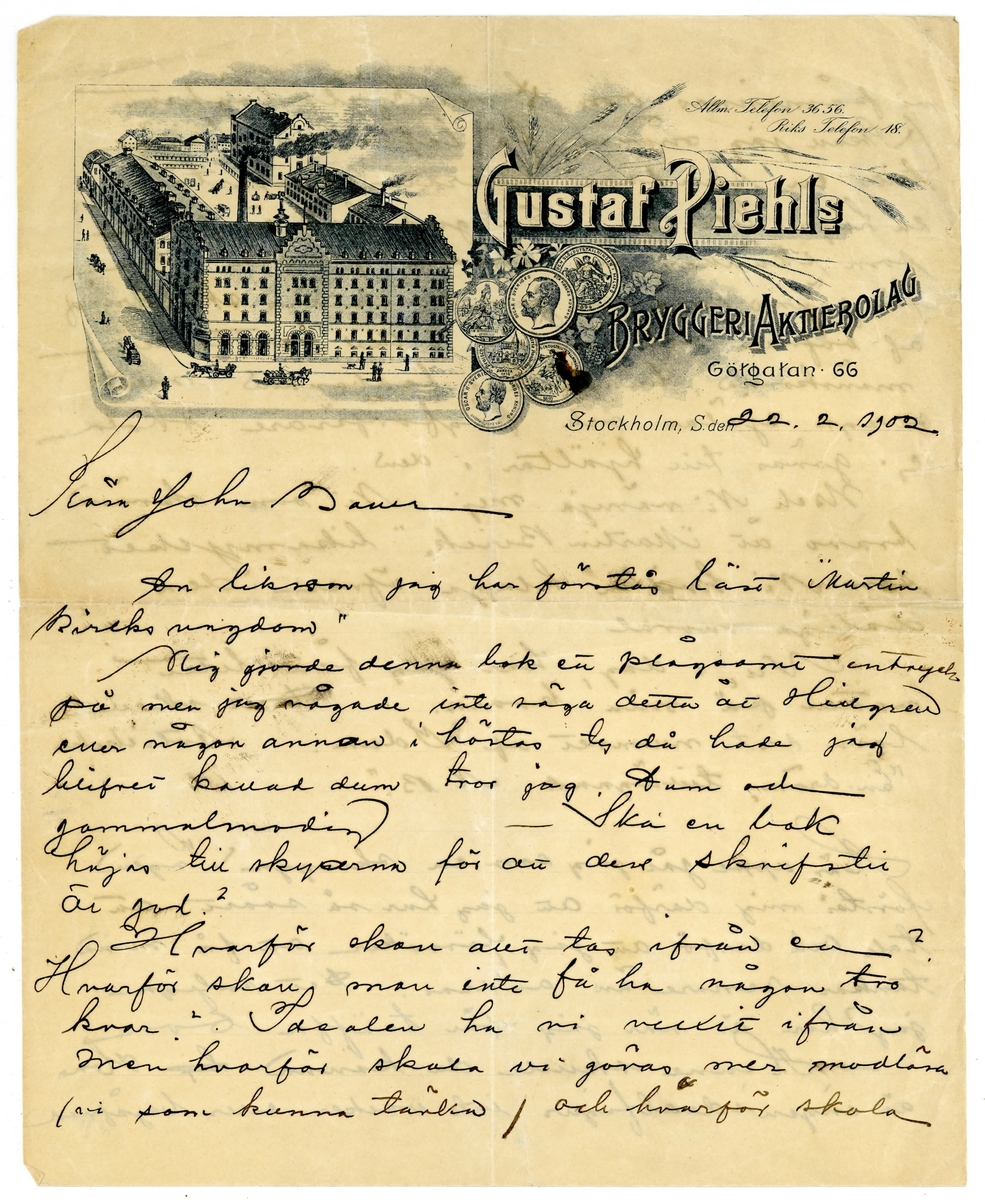 Allm. Telefon 36 56.
Riks Telefon 18.
Gustaf Piehls
Bryggeri Aktiebolag
Götgatan · 66
Stockholm, S. den 22. 2. 1902
Kära John Bauer
Du liksom jag har förstås läst "Martin
Bircks ungdom"
Mig gjorde denna bok ett plågsamt
på men jag vågade inte säga detta åt Hedgren
eller någon annan i höstas ty då hade jag
blifvet kallad dum tror jag. Dum och
gammalmodig — Ska en bok
höjas till skyarna för att dess skrifstil
är god?
Hvarför skall allt tas ifrån en?
Hvarför skall man inte få ha någon tro
kvar?. Idealen ha vi vuxit ifrån
Men hvarför skola vi göras mer modlösa
(vi som kunna tänka) och hvarför skola